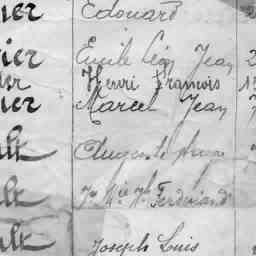 ier Edouard
ier Emile Léon Jean 2
ier Henri François 1
ier Marcel Jean 7
ult Auguste
ult Ferdinand
ult Joseph Louis